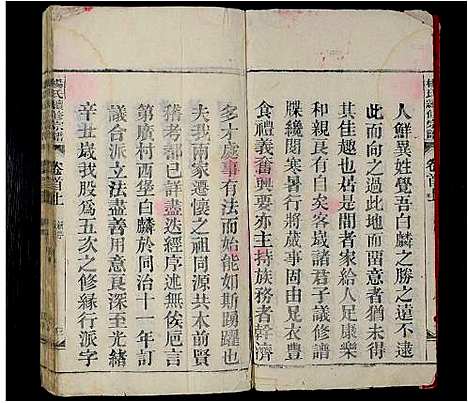 楊氏續修宗譜
卷首上
人鮮異姓覺吾白麟之勝之道不遠
此而向之過此地而闇意者猶未得
其佳趣也是間者家給人足康樂
和親良有白矣客歲諸君子議修譜
牒纔閱寒暑行將歲事固由足衣豐
食禮義奮興要亦主持族務者幹濟
多才處事有法而始能如斯踴躍也
夫我兩家遷懷之祖同源共木前賢
稽考都已詳盡迭經序述無俟卮言
第廣村西堡白麟於同治十一年訂
議合派立法盡善用意良深至光緒
辛丑歲我股爲五次之修緣行派字
楊氏續修宗譜
卷首上